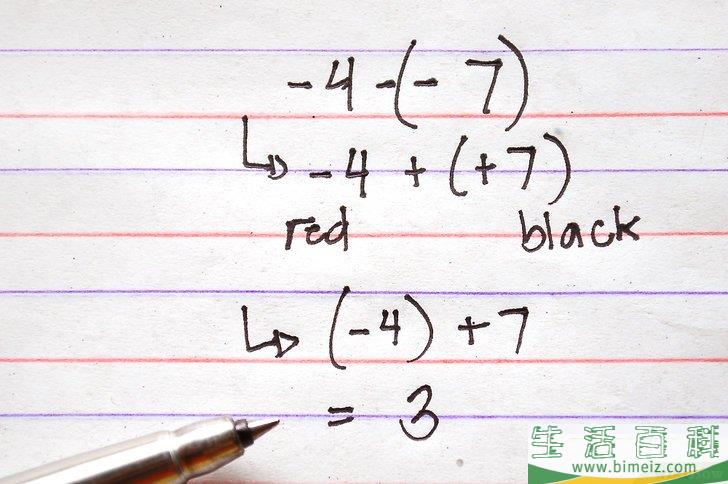 -4 -(- 7)
↳ -4 + (+7)
red black
↳ (-4) +7
= 3
生活百科
www.bimeiz.com